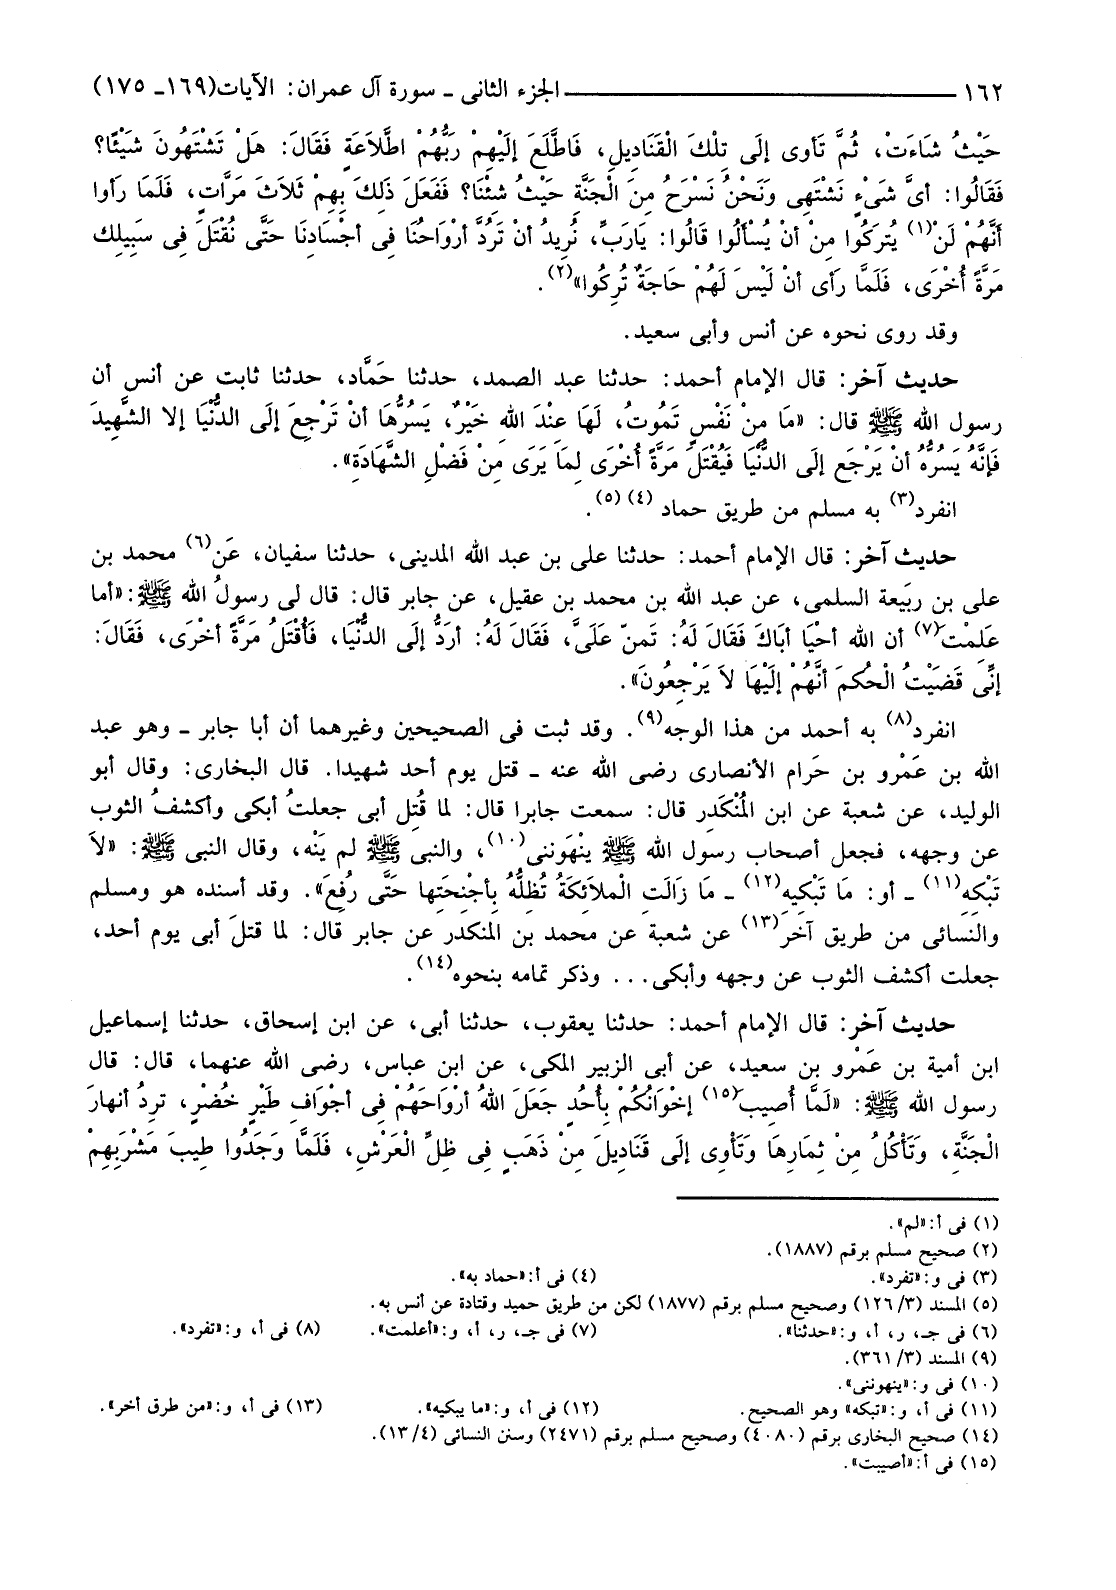 ١٦٢ ــــــــــــــــــ الجزء الثانى ـ سورة آل عمران: الآيات(١٦٩ـ ١٧٥)
حَيْثُ شَاءَتْ، ثُمَّ تَأوى إلَى تِلْكَ الْقَنَاديلِ، فَاطَّلَعَ إلَيْهِمْ رَبُّهُمْ اطِّلاَعَةٍ فَقَالَ: هَلْ تَشْتَهُونَ شَيْئًا؟
فَقَالُوا: أىَّ شَىْءٍ نَشْتَهِى وَنَحْنُ نَسْرَحُ مِنَ الْجَنَّةِ حَيْثُ شئْنَا؟ فَفَعَلَ ذَلِكَ بِهِمْ ثَلاَثَ مَرَّاتٍ، فَلَمَا رَأوا
أنَّهُمْ لَنْ(١) يُتركُوا مِنْ أنْ يُسْألُوا قَالُوا: يَارَبِّ، نُريدُ أنْ تَرُدَّ أرْوَاحنَا فِى أجْسَادِنَا حَتَّى نُقْتَلَ فِى سَبِيلِك
مَرَّةً أُخْرَى، فَلَمَّا رَأى أنْ لَيْسَ لَهُمْ حَاجَةٌ تُرِكُوا»(٢).
وقد روى نحوه عن أنس وأبى سعيد.
حديث آخر: قال الإمام أحمد: حدثنا عبد الصمد، حدثنا حَمَّاد، حدثنا ثابت عن أنس أن
رسول الله ﷺ قال: «مَا مِنْ نَفْسٍ تَمُوتُ، لَهَا عنْدَ الله خَيْرٌ، يَسُرُّهَا أنْ تَرْجِعَ إلَى الدُّنْيَا إلا الشَّهِيدَ
فَإنَّهُ يَسُرُّهُ أنْ يَرْجَع إلَى الدُّنْيَا فَيُقْتَلَ مَرَّةً أُخْرَى لمَا يَرَى مِنْ فَضْلِ الشَّهَادَةِ».
انفرد(٣) به مسلم من طريق حماد (٤) (٥).
حديث آخر: قال الإمام أحمد: حدثنا على بن عبد الله المدينى، حدثنا سفيان، عَن(٦) محمد بن
على بن ربَيعة السلمى، عن عبد الله بن محمد بن عقيل، عن جابر قال: قال لى رسولُ الله ﷺ:«أما
عَلمْت(٧) أن الله أحْيَا أبَاكَ فَقَالَ لَهُ: تَمنّ عَلَىَّ، فَقَالَ لَهُ: أرَدُّ إلَى الدُّنْيَا، فَأُقْتَلُ مَرَّةً أخْرَى، فَقَالَ:
إنِّى قَضَيْتُ الْحُكمَ أنَّهُمْ إلَيْهَا لاَ يَرْجِعُونَ».
انفرد(٨) به أحمد من هذا الوجه(٩). وقد ثبت فى الصحيحين وغيرهما أن أبا جابر ـ وهو عبد
الله بن عَمْرو بن حَرام الأنصارى رضى الله عنه ـ قتل يوم أحد شهيدا. قال البخارى: وقال أبو
الوليد، عن شعبة عن ابن المُنْكَدِر قال: سمعت جابرا قال: لما قُتِل أبى جعلتُ أبكى وأكشفُ الثوب
عن وجهه، فجعل أصحاب رسول الله ﷺ ينْهَوننى(١٠)، والنبى ﷺ لم يَنْه، وقال النبى ﷺ: «لاَ
تَبْكِه(١١) ـ أو: مَا تَبْكِيه(١٢) ـ مَا زَالَت الْملاَئكَةُ تُظلُّهُ بأجْنحَتِها حَتَّى رُفِعَ». وقد أسنده هو ومسلم
والنسائى من طريق آخَر(١٣) عن شعبة عن محمد بن المنكدر عن جابر قال: لما قتلَ أبى يوم أحد،
جعلت أكشف الثوب عن وجهه وأبكى... وذكر تمامه بنحوه(١٤).
حديث آخر: قال الإمام أحمد: حدثنا يعقوب، حدثنا أبى، عن ابن إسحاق، حدثنا إسماعيل
ابن أمية بن عَمْرو بن سعيد، عن أبى الزبير المكى، عن ابن عباس، رضى الله عنهما، قال: قال
رسول الله ﷺ: «لَمَّا أُصِيب(١٥) إخْوَانُكُمْ بأُحُدٍ جَعَلَ اللهُ أرْوَاحَهُمْ فِى أجْوَافِ طَيْرٍ خُضْرٍ، تردُ أنهارَ
الْجَنَّةِ، وَتَأكُلُ مِنْ ثِمَارِهَا وَتَأوِى إلَى قَنَادِيلَ مِنْ ذَهَبٍ فِى ظِلِّ الْعَرْشِ، فَلَمَّا وَجَدُوا طِيبَ مَشْرَبِهِمْ
(١) فى أ:«لم».
(٢) صحيح مسلم برقم (١٨٨٧).
(٣) فى و:«تفرد». (٤) فى أ:«حماد به».
(٥) المسند (٣/ ١٢٦) وصحيح مسلم برقم (١٨٧٧) لكن من طريق حميد وقتادة عن أنس به.
(٦) فى جـ، ر، أ، و:«حدثنا». (٧) فى جـ، ر، أ، و:«أعلمت». (٨) فى أ، و:«تفرد».
(٩) المسند (٣/ ٣٦١).
(١٠) فى و:«ينهوننى».
(١١) فى أ، و:«تبكه» وهو الصحيح. (١٢) فى أ، و:«ما يبكيه». (١٣) فى أ، و:«من طرق أخر».
(١٤) صحيح البخارى برقم (٤٠٨٠) وصحيح مسلم برقم (٢٤٧١) وسنن النسائى (٤/ ١٣).
(١٥) فى أ:«أصيبت».